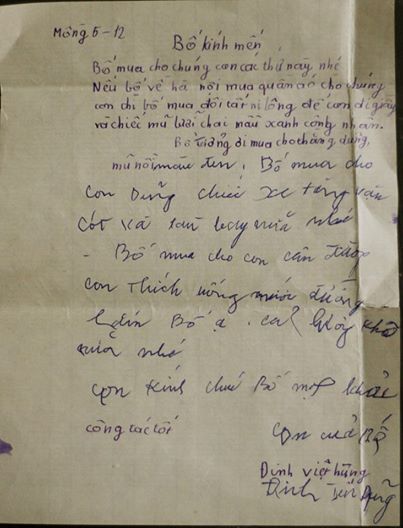 Mồng 5-12
Bố kính mến
Bố mua cho chúng con các thứ này nhé
Nếu bố về hà nội mua quần áo cho chúng
con thì bố mua đôi tất ni lông để con đi giầy
và chiếc mũ lưỡi chai mầu xanh công nhân.
Bố đi mua cho thằng dũng,
mũ nồi màu đen, Bố mua cho
con Dũng chiếc xe tăng vân
cót và tàu bay nữa nhé
- Bố mua cho con cân đường
con thích uống nước đường
Bố ạ. cả khô
nữa nhé
con kính chúc Bố mạnh khỏe
công tác tốt
con của Bố
Dinh việt hùng
Đinh Dũng